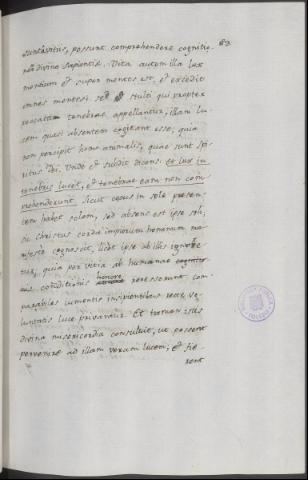 suntavitus, possunt comprehendere cognitio- 83.
nem divinæ sapientiæ. Vita autem illa lux
mentium et super mentes est, et excedit
omnes mentes: sed stulti qui propter
peccatum tenebræ appellantur, illam lu
cem quasi absentem cogitant esse; quia
non percipit homo animalis, quæ sunt Spi
ritus Dei. Unde et subdit dicens: et lux in
tenebris lucet, et tenebræ eam non com
prehenderunt. Sicut cæcus in sole præsen
tem habet solem, sed absens est ipse soli,
sic Christus corda impiorum hominum ma
nifeste cognoscit, licet ipse ab illis ignore
tur, quia per vitia ab humanæ cognitio
nis conditionis honore recesserunt, com
parabiles jumentis insipientibus veræ, ve
luntatis luce privantur. Et tamen istis
divina misericordia consuluit, ut possent
pervenire ad illam veram lucem; et fie
rent